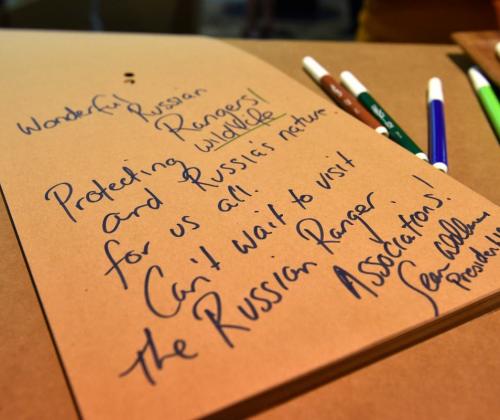 Wonderful Russian
Rangers!
wildlife
Protecting
and Russia's nature.
for us all.
Can't wait to visit
the Russian Ranger
Associations!
Sean
President